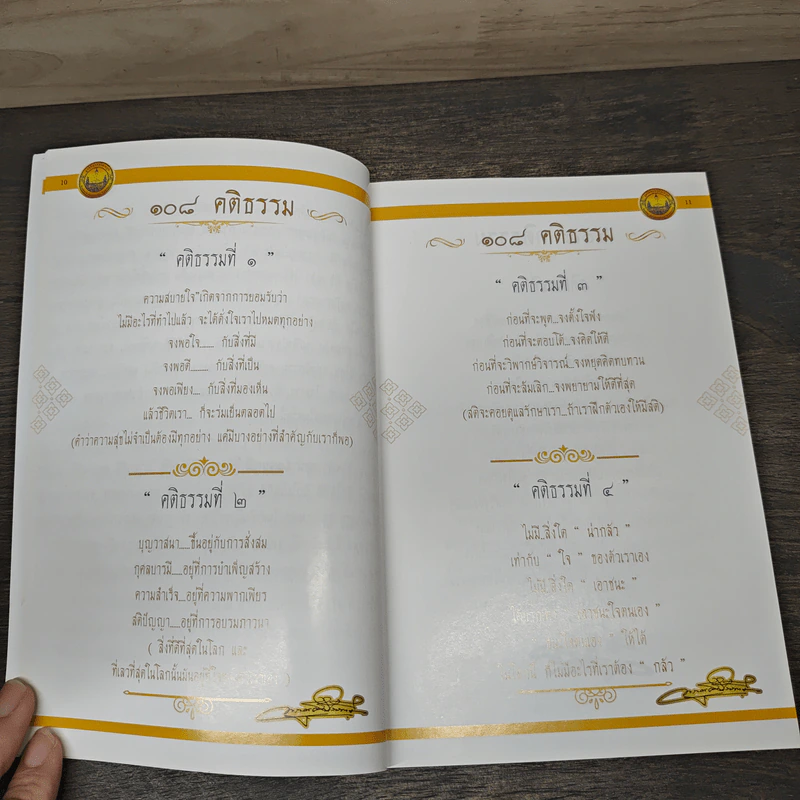 10
๑๐๘ คติธรรม
“ คติธรรมที่ ๑ ”
ความสบายใจ"เกิดจากการยอมรับว่า
ไม่มีอะไรที่ทำไปแล้ว จะได้ดั่งใจเราไปหมดทุกอย่าง
จงพอใจ___ กับสิ่งที่มี
จงพอดี___ กับสิ่งที่เป็น
จงพอเพียง_ กับสิ่งที่มองเห็น
แล้วชีวิตเรา_ ก็จะร่มเย็นตลอดไป
(คำว่าความสุขไม่จำเป็นต้องมีทุกอย่าง แค่มีบางอย่างที่สำคัญกับเราก็พอ)
“ คติธรรมที่ ๒ ”
บุญวาสนา__ขึ้นอยู่กับการสั่งสม
กุศลบารมี__อยู่ที่การบำเพ็ญสร้าง
ความสำเร็จ_อยู่ที่ความพากเพียร
สติปัญญา_อยู่ที่การอบรมภาวนา
( สิ่งที่ดีที่สุดในโลก และ
ที่เลวที่สุดในโลกนั้นมันอยู่ที่
11
๑๐๘ คติธรรม
“ คติธรรมที่ ๓ ”
ก่อนที่จะพูด_จงตั้งใจฟัง
ก่อนที่จะตอบโต้_จงคิดให้ดี
ก่อนที่จะวิพากษ์วิจารณ์_จงหยุดคิดทบทวน
ก่อนที่จะล้มเลิก_จงพยายามให้ดีที่สุด
(สติจะคอยดูแลรักษาเรา_ถ้าเราฝึกตัวเองให้มีสติ)
“ คติธรรมที่ ๔ ”
ไม่มี_สิ่งใด “ น่ากลัว ”
เท่ากับ “ ใจ ” ของตัวเราเอง
สิ่งใด “ เอาชนะ ”
ชนะใจตนเอง ”
” ให้ได้
ไม่มีอะไรที่เราต้อง “ กลัว ”